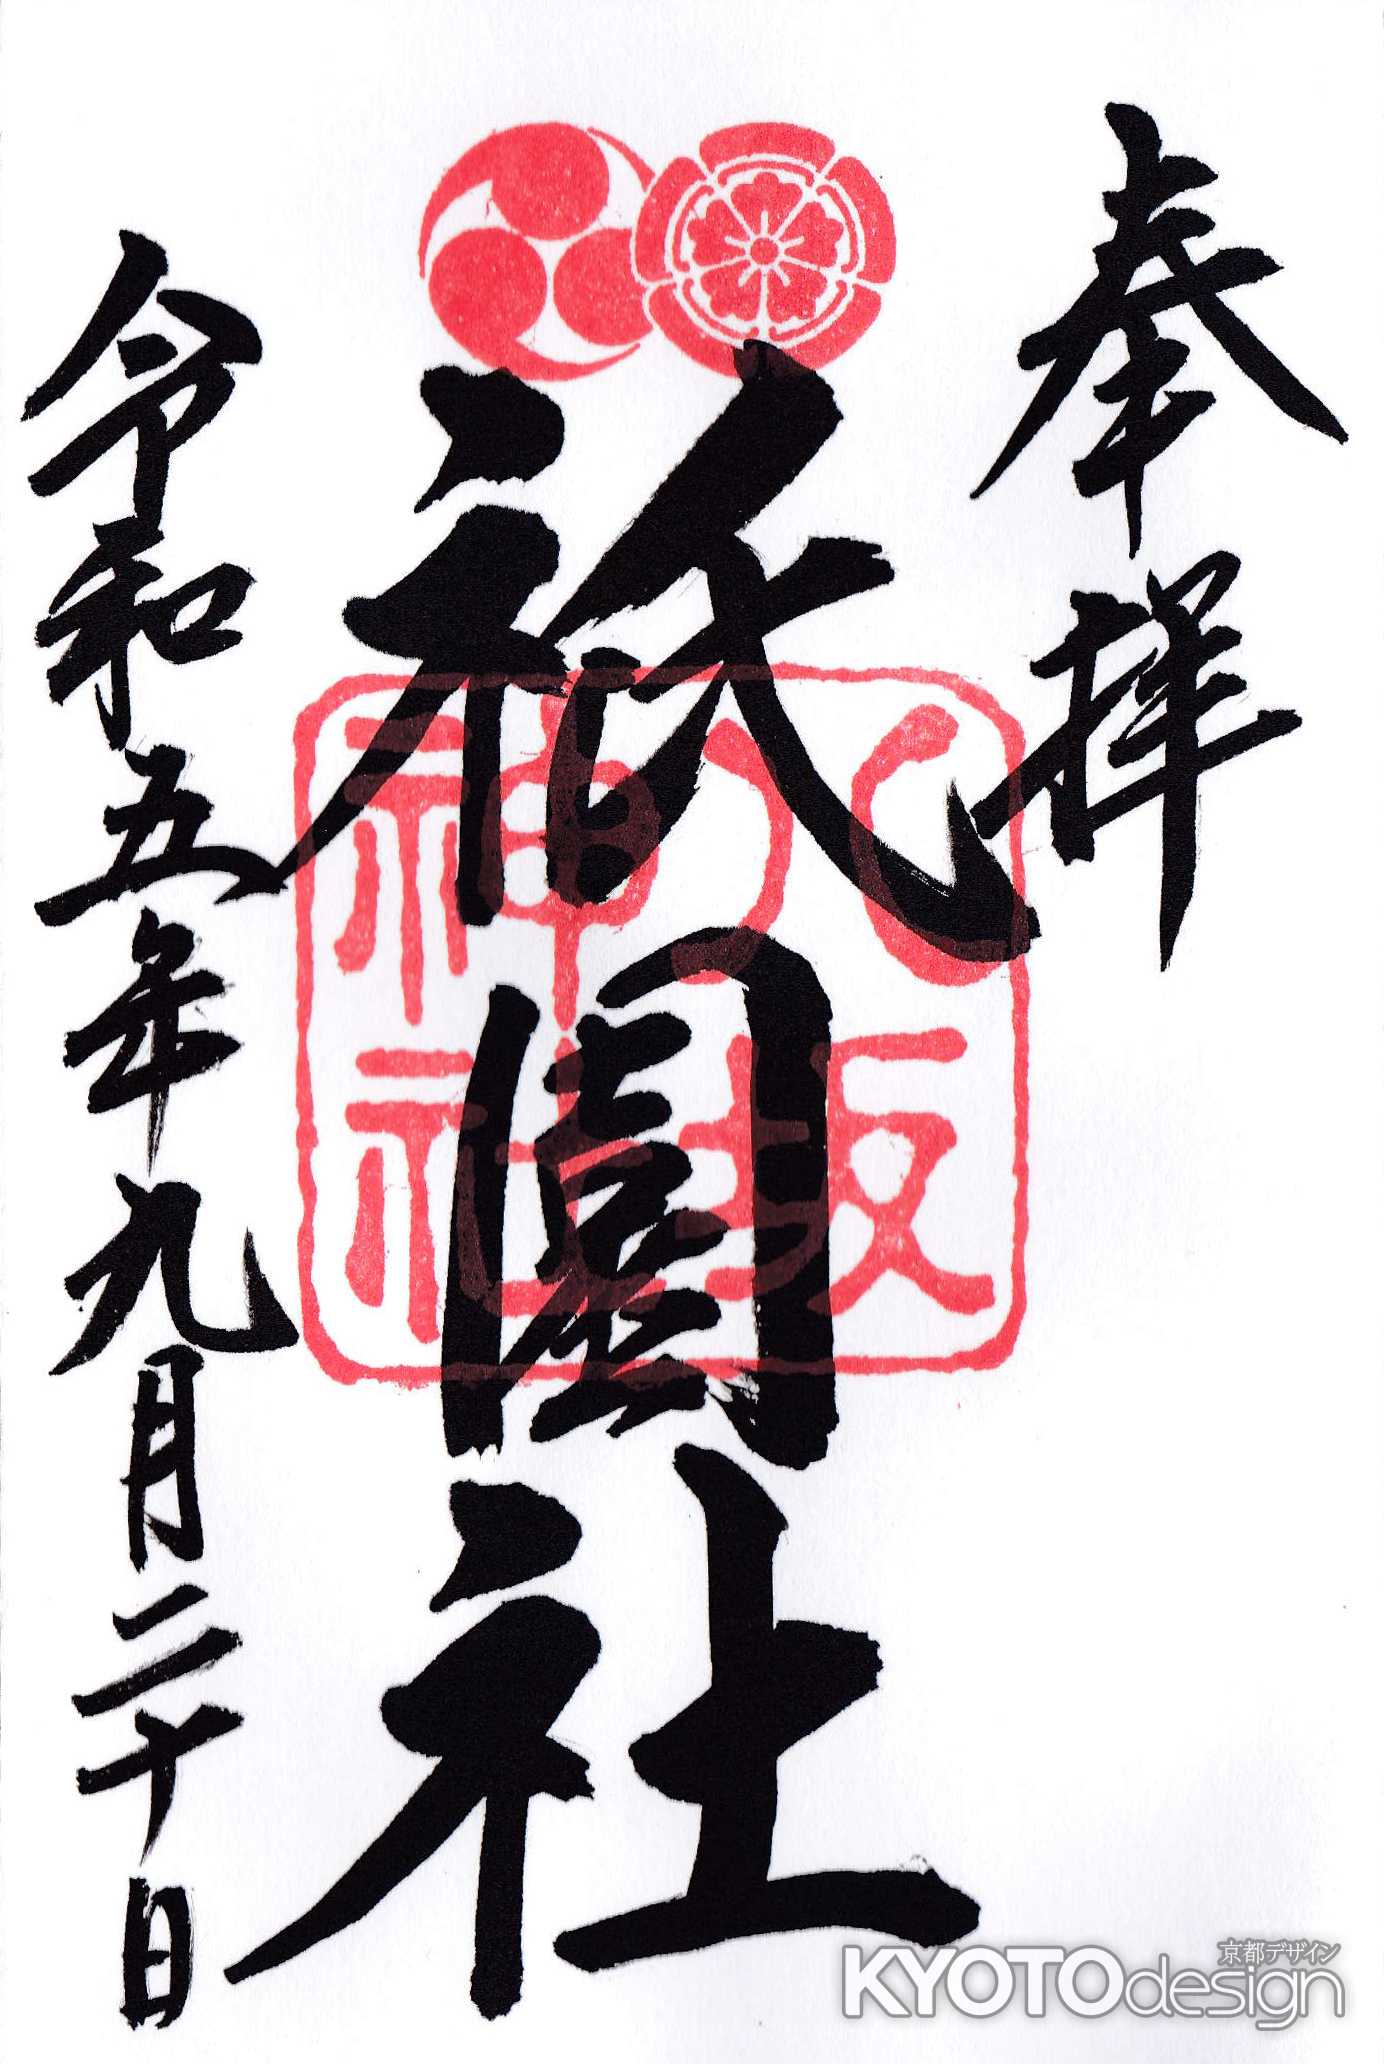 奉拝
八坂
神社
祇園社
令和五年九月二十日
京都デザイン
KYOTOdesign